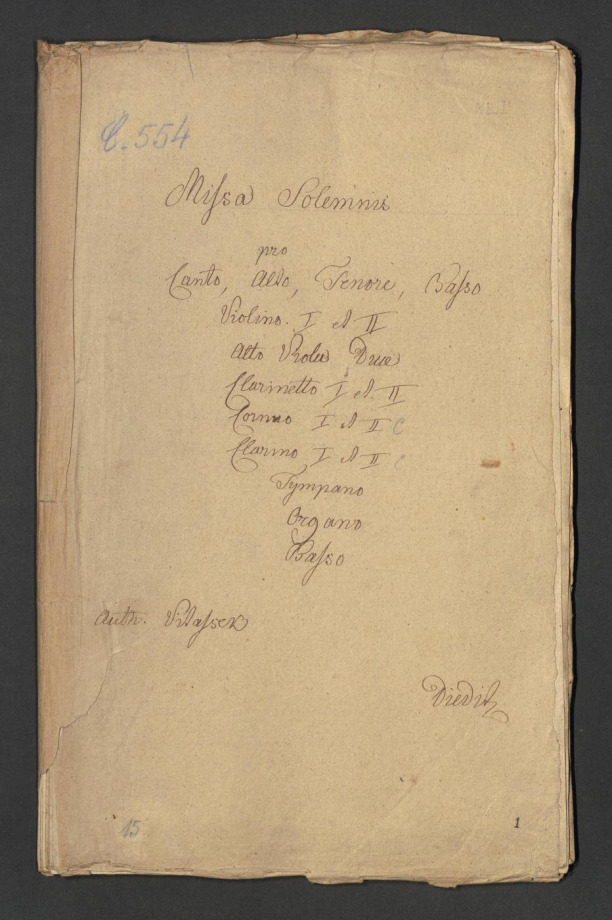 C. 554
Missa Solemnis
pro
Canto, Alto, Tenore, Basso
Violino. I et II
Alto Viola Due
Clarinetto I et. II
Cornuo I et II C
Clarino I et II C
Tympano
Organo
Basso
Auth. Vitassek
15
1